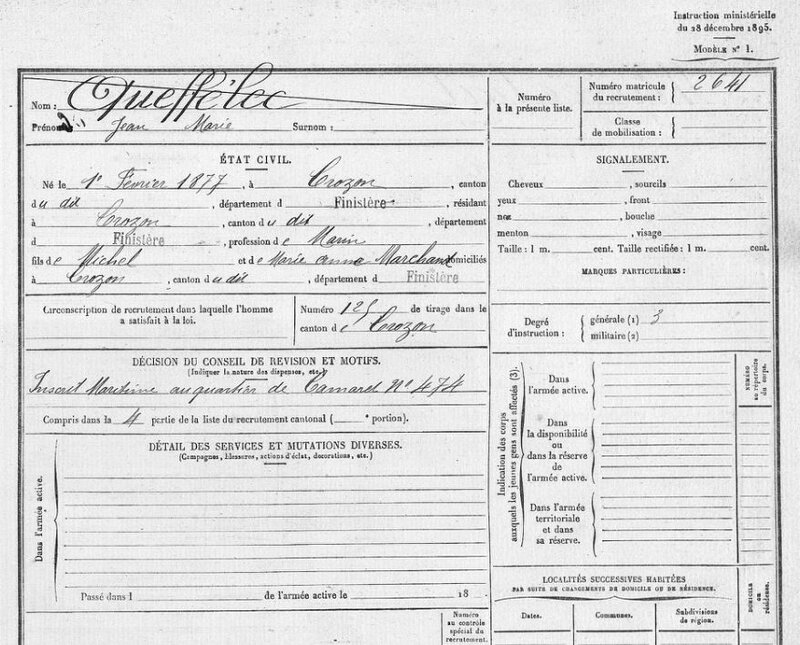 Instruction ministérielle
du 28 décembre 1895.
MODÈLE N° 1.
Nom : Queffélec
Prénoms Jean Marie Surnom :
ÉTAT CIVIL.
Né le 1r Février 1877, à Crozon, canton
du dit, département d Finistère, résidant
à Crozon, canton du dit, département
d Finistère, profession de Marin
fils de Michel et de Marie Anna Marchand domiciliés
à Crozon, canton du dit, département d Finistère
Circonscription de recrutement dans laquelle l'homme
a satisfait à la loi.
Numéro 125 de tirage dans le
canton de Crozon
DÉCISION DU CONSEIL DE REVISION ET MOTIFS.
(Indiquer la nature des dispenses, etc.)
Inscrit Maritime au quartier de Camaret N° 474
Compris dans la 4 partie de la liste du recrutement cantonal ( e portion).
DÉTAIL DES SERVICES ET MUTATIONS DIVERSES.
(Campagnes, blessures, actions d'éclat, décorations, etc.)
Dans l'armée active.
Passé dans l de l'armée active le 18
Numéro
au contrôle
spécial du
recrutement.
Numéro
à la présente liste.
Numéro matricule
du recrutement : 2641
Classe
de mobilisation :
SIGNALEMENT.
Cheveux , sourcils
yeux , front
nez , bouche
menton , visage
Taille : 1 m. cent. Taille rectifiée : 1 m. cent.
MARQUES PARTICULIÈRES :
Degré
d'instruction :
générale (1) 3
militaire (2)
Indication des corps
auxquels les jeunes gens sont affectés (3).
Dans
l'armée active.
Dans
la disponibilité
ou
dans la réserve
de
l'armée active.
Dans l'armée
territoriale
et dans
sa réserve.
NUMÉRO
au répertoire
du corps.
LOCALITÉS SUCCESSIVES HABITÉES
PAR SUITE DE CHANGEMENTS DE DOMICILE OU DE RÉSIDENCE.
Dates.
Communes.
Subdivisions
de région.
DOMICILE
ou
résidence.